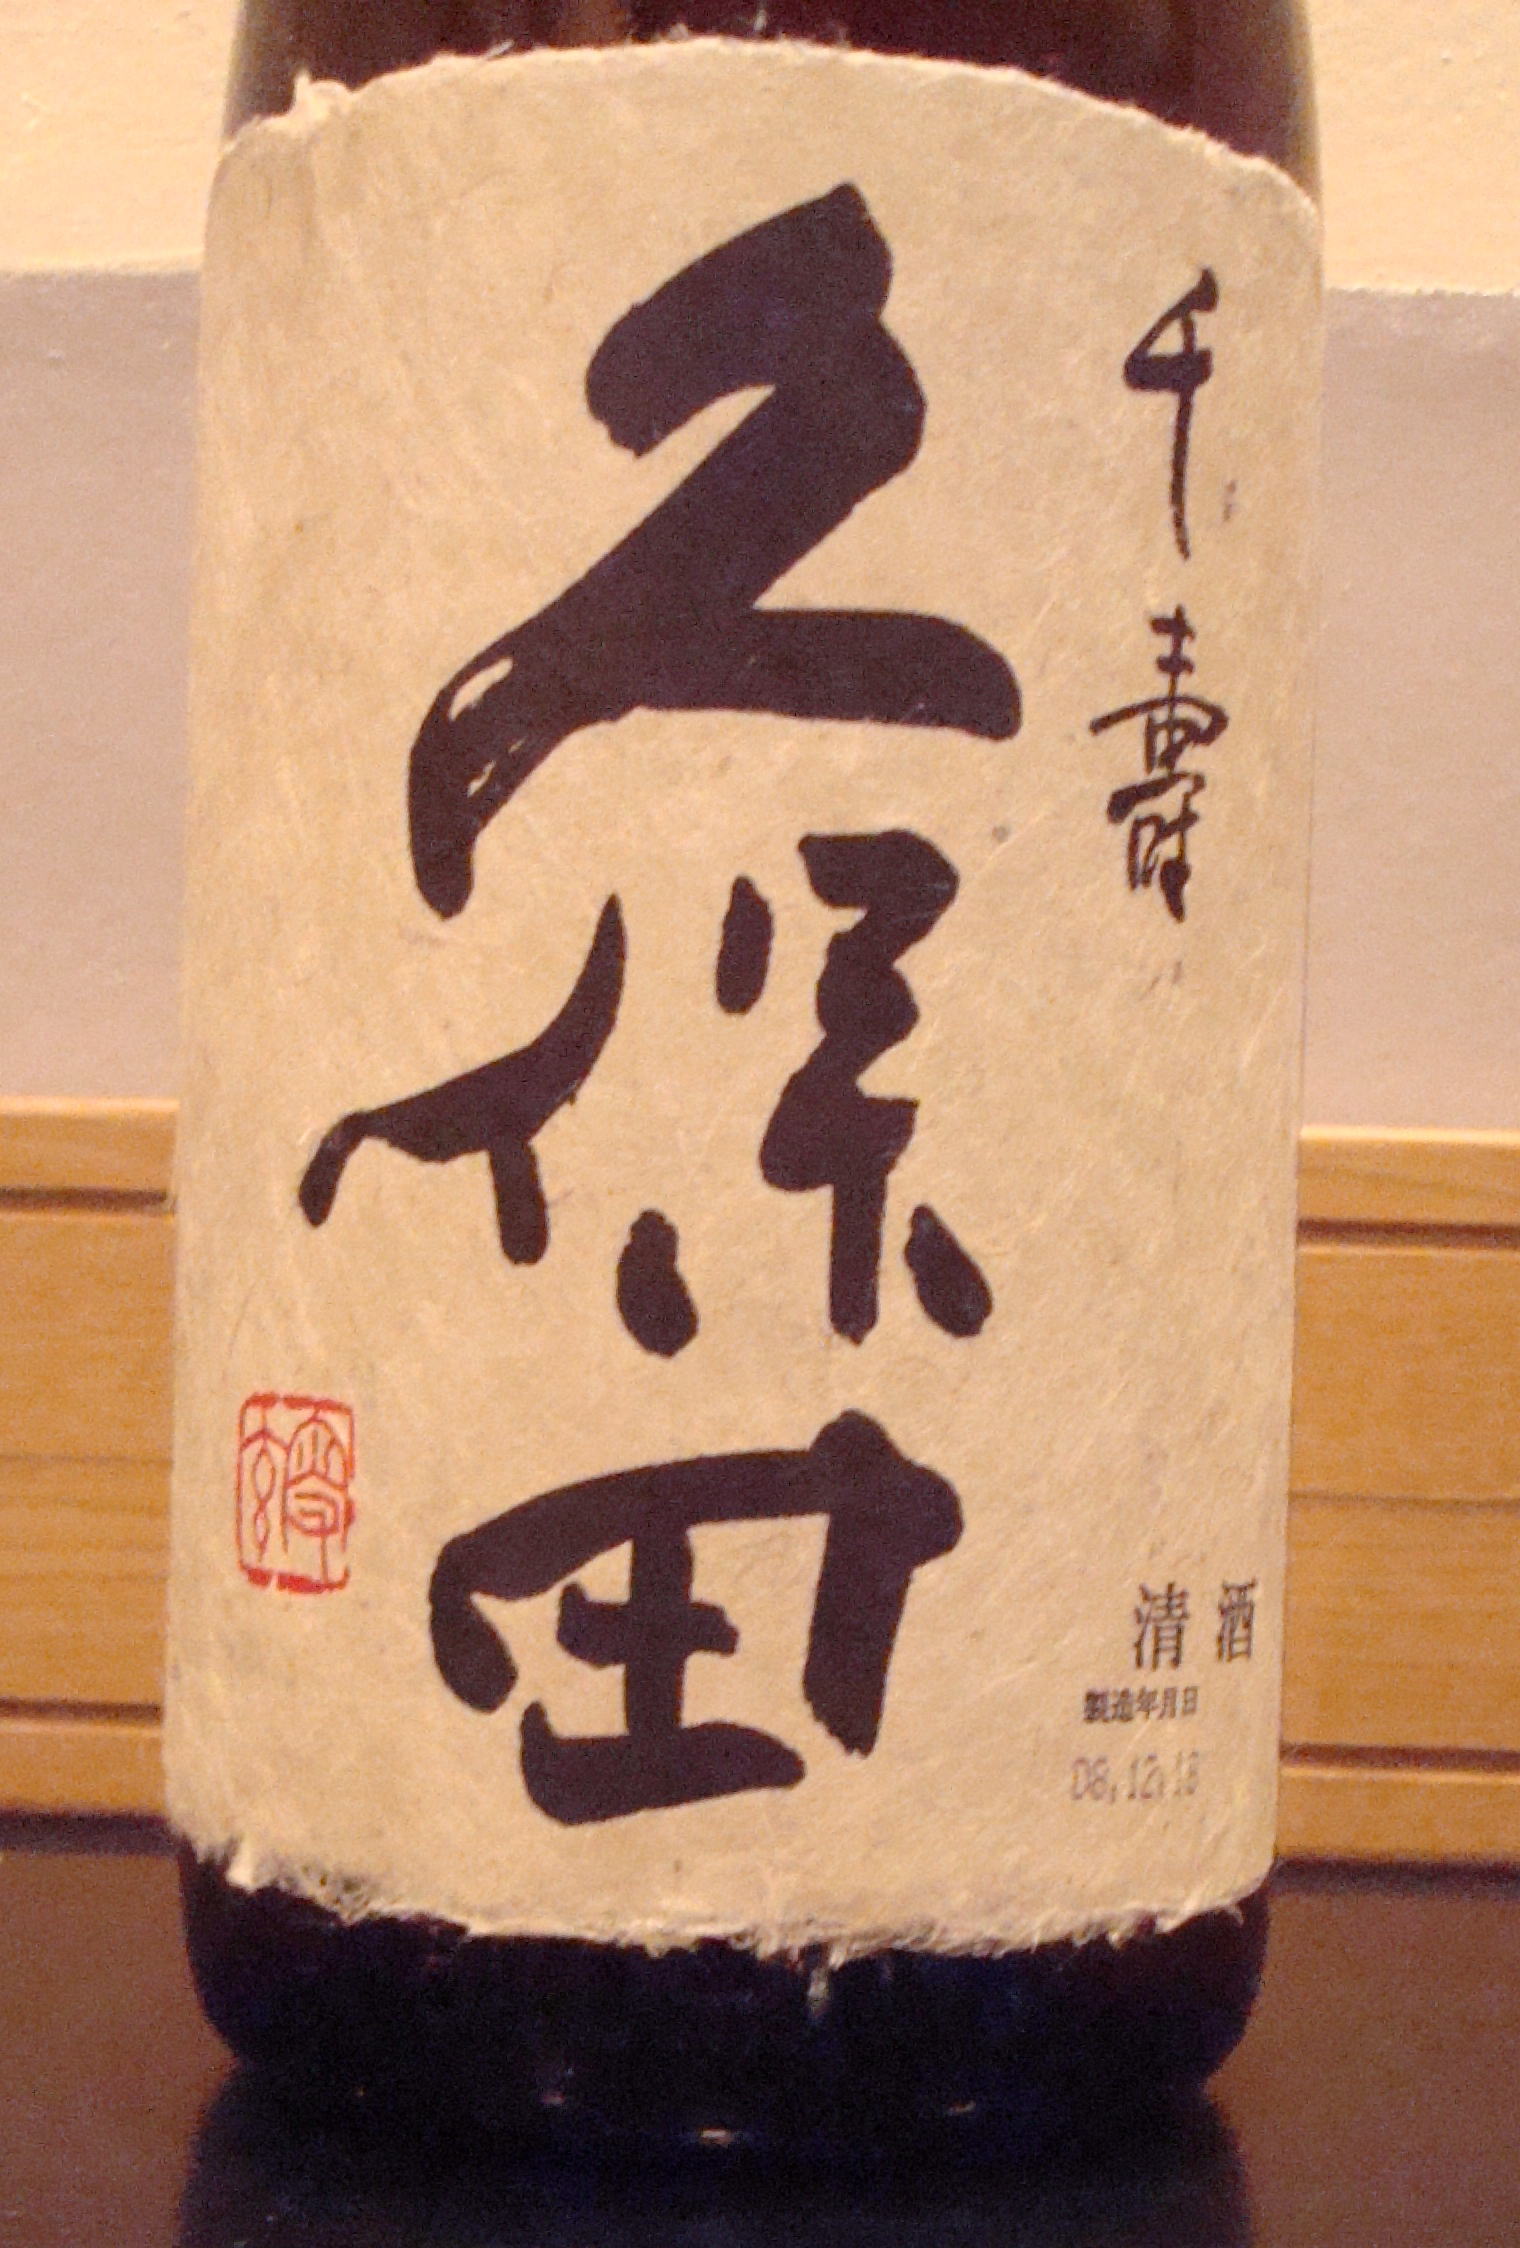 千壽
久保田
清酒
製造年月日
08.12.18